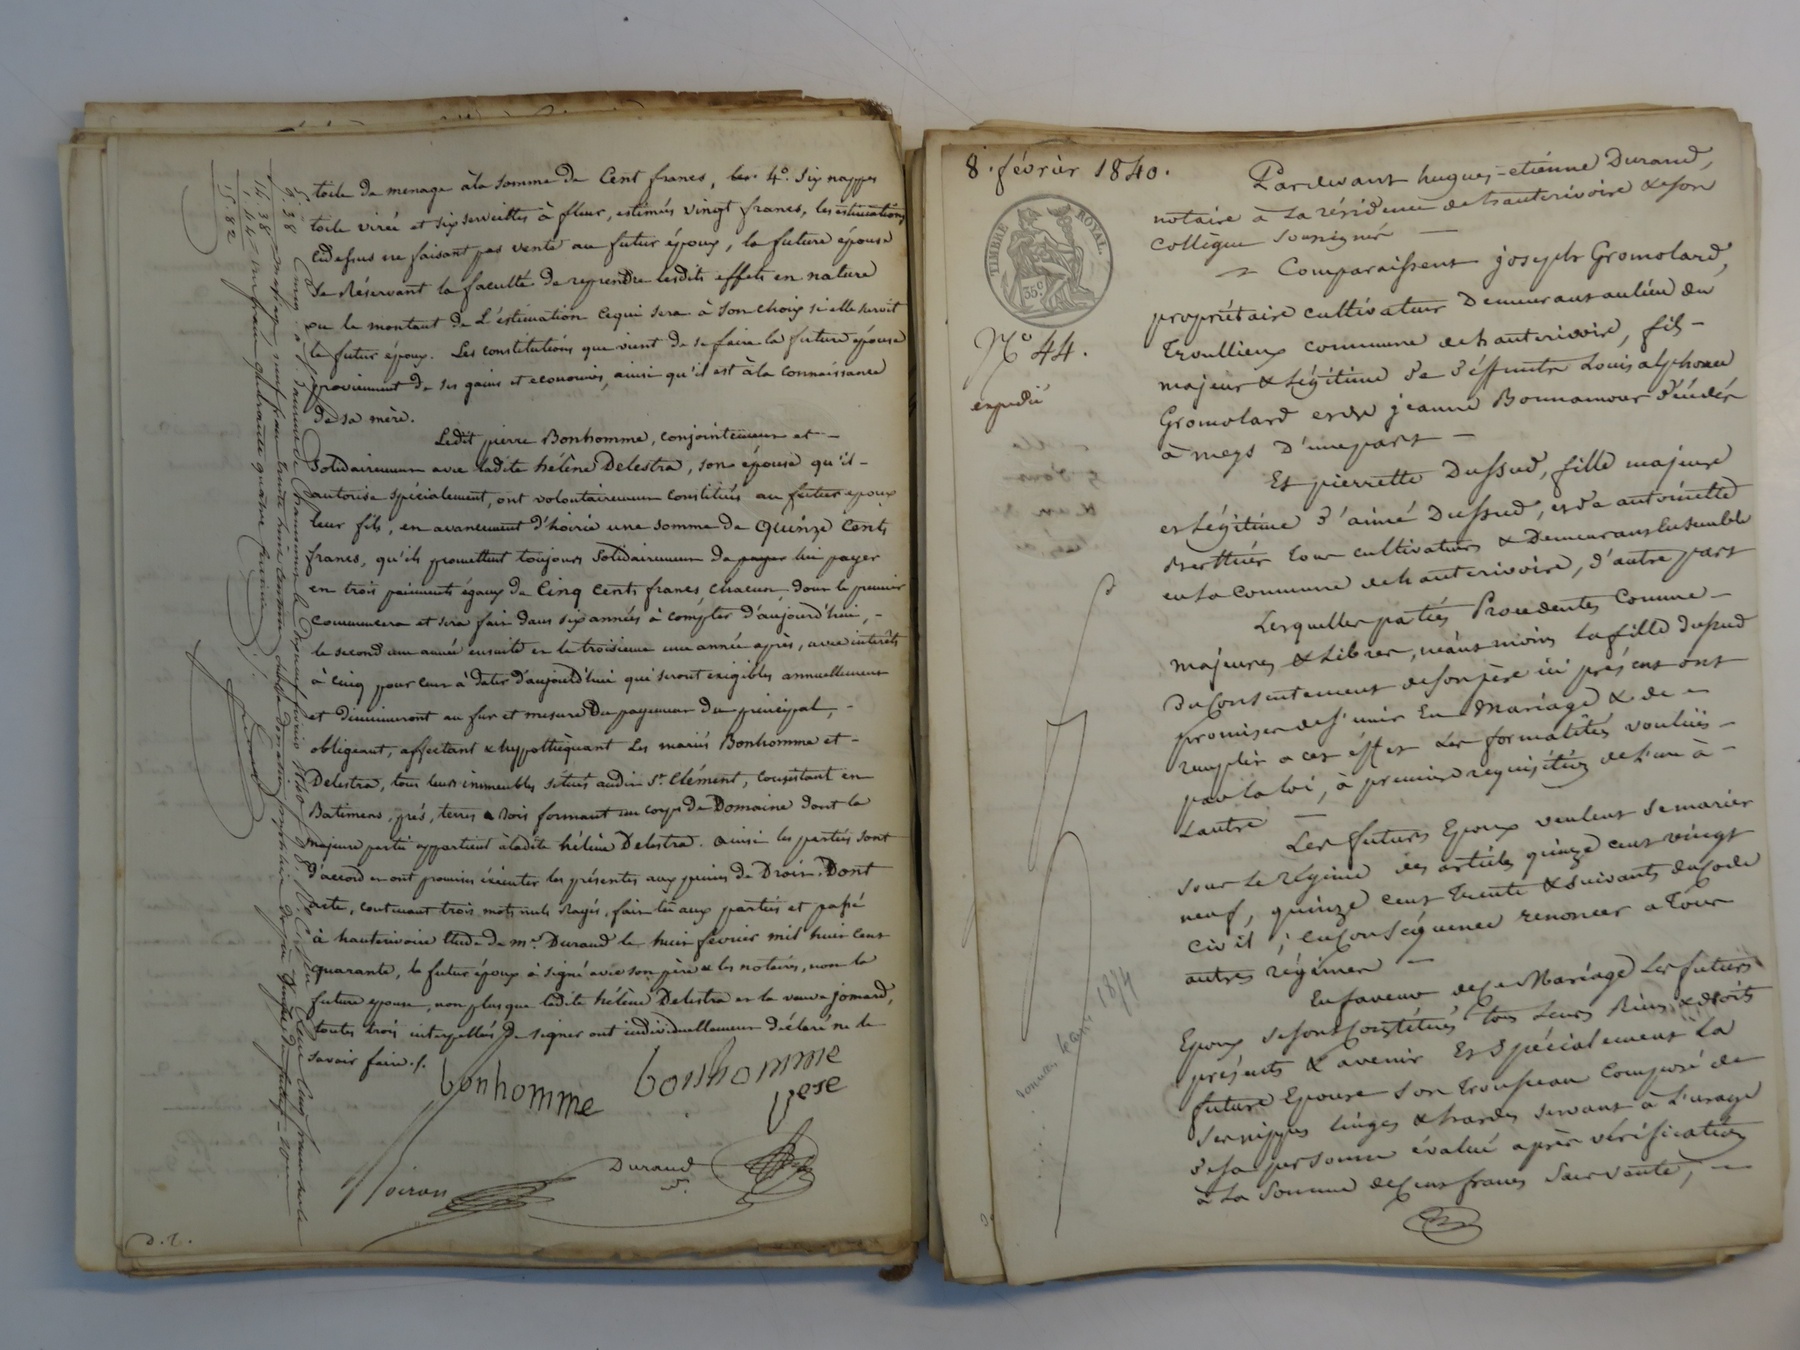 toile de menage à la somme de Cent francs, les 4º. Six nappes
toile virée et six serviettes à fleur, estimés vingt francs, les estimations
cidessus ne faisant pas vente au futur époux, la future épouse
se Réservant la faculté de reprendre lesdits effets en nature
ou le montant de L'éstimation ce qui sera à son choix si elle survit
le futur époux. Les constitutions que vient de se faire la future épouse
proviennent de ses gains et economies, ainsi qu'il est à la connaissance
de sa mère.
Ledit pierre Bonhomme, conjointement et -
Solidairement avec ladite hélène Delestra, son épouse qu'il -
autorise spécialement, ont volontairement constitués au futur epoux
leur fils, en avancement d'hoirie une somme de quinze Cents
francs, qu'ils promettent toujours Solidairement de payer lui payer
en trois paiments égaux de Cinq Cents francs, chacun, dont le premier
commencera et sera fait dans six années à compter d'aujourd'hui, -
le second une année ensuite et le troisieme une année après, avec intérêts
à cinq pour cent à dater d'aujourd'hui qui seront exigibles annuellement
et diminueront au fur et mesure Du payement du principal, -
obligeant, affectant & hyppothéquant Les mariés Bonhomme et -
Delestra, tous leurs immeubles situés audit St. Clément, Consistant en
Batimens, prés, terres & bois formant un corps de Domaine dont la
majeure partie appartient à ladite hélène Delestra. ainsi les parties sont
d'accord et ont promis éxécuter les présentes aux peines de Droit. Dont
acte, contenant trois mots nuls rayés, fait lu aux parties et passé
à hauterivoire Etude de me. Durand le huit février mil huit cent
quarante, le futur époux à signé avec son père & les notaires, non la
future epouse, non plus que ladite hélène Delestra et la veuve jomard,
toutes trois interpellés De signer ont individuellement déclaré ne le
savoir faire./.
bonhomme bonhomme
pere
Durand
Noiran
D. L.
14. 38
1. 44
15. 82
8. février 1840.
TIMBRE ROYAL
35.c
Nº 44.
expedié
Pardevant hugues-etiénne Durand,
notaire à La résidence de hauterivoire & son
collègue soussignés —
Comparaissent joseph Gromolard,
propriétaire cultivateur Demeurant au lieu du
Troullieux commune de hauterivoire, fils -
majeur & Légitime de déffunts Louis alphonse
Gromolard et de jeanne Bonnamour décédés
à meys D'une part —
Et pierrette Dussud, fille majeure
et Légitime d'aimé Dussud, et de antoinette
Berthier tous cultivateurs & Demeurans Ensemble
en La Commune de hauterivoire, d'autre part
Lesquelles paties Procedentes comme -
majeures & Libres, néantmoins La fille dussud
du consentement de son père ici présent ont
promis de s'unir En Mariage & de -
remplir a cet éffet Les formalités voulues -
par la loi, à premiere requisition de L'un à -
L'autre —
Les futurs Epoux veulent se marier
sous Le régime des articles quinze cent vingt
neuf, quinze cent trente & suivants du code
civil ; en conséquence renoncer a Tout
autres régimes —
En faveur de ce Mariage Les futurs
Epoux se sont constitués tous Leurs Biens & droits
présents & avenir Et Spécialement La
future Epouse son trousseau Composé de
ses nippes linges & hardes servant à L'usage
de sa personne évalué après vérification
à La Somme de cent francs sans vente, —